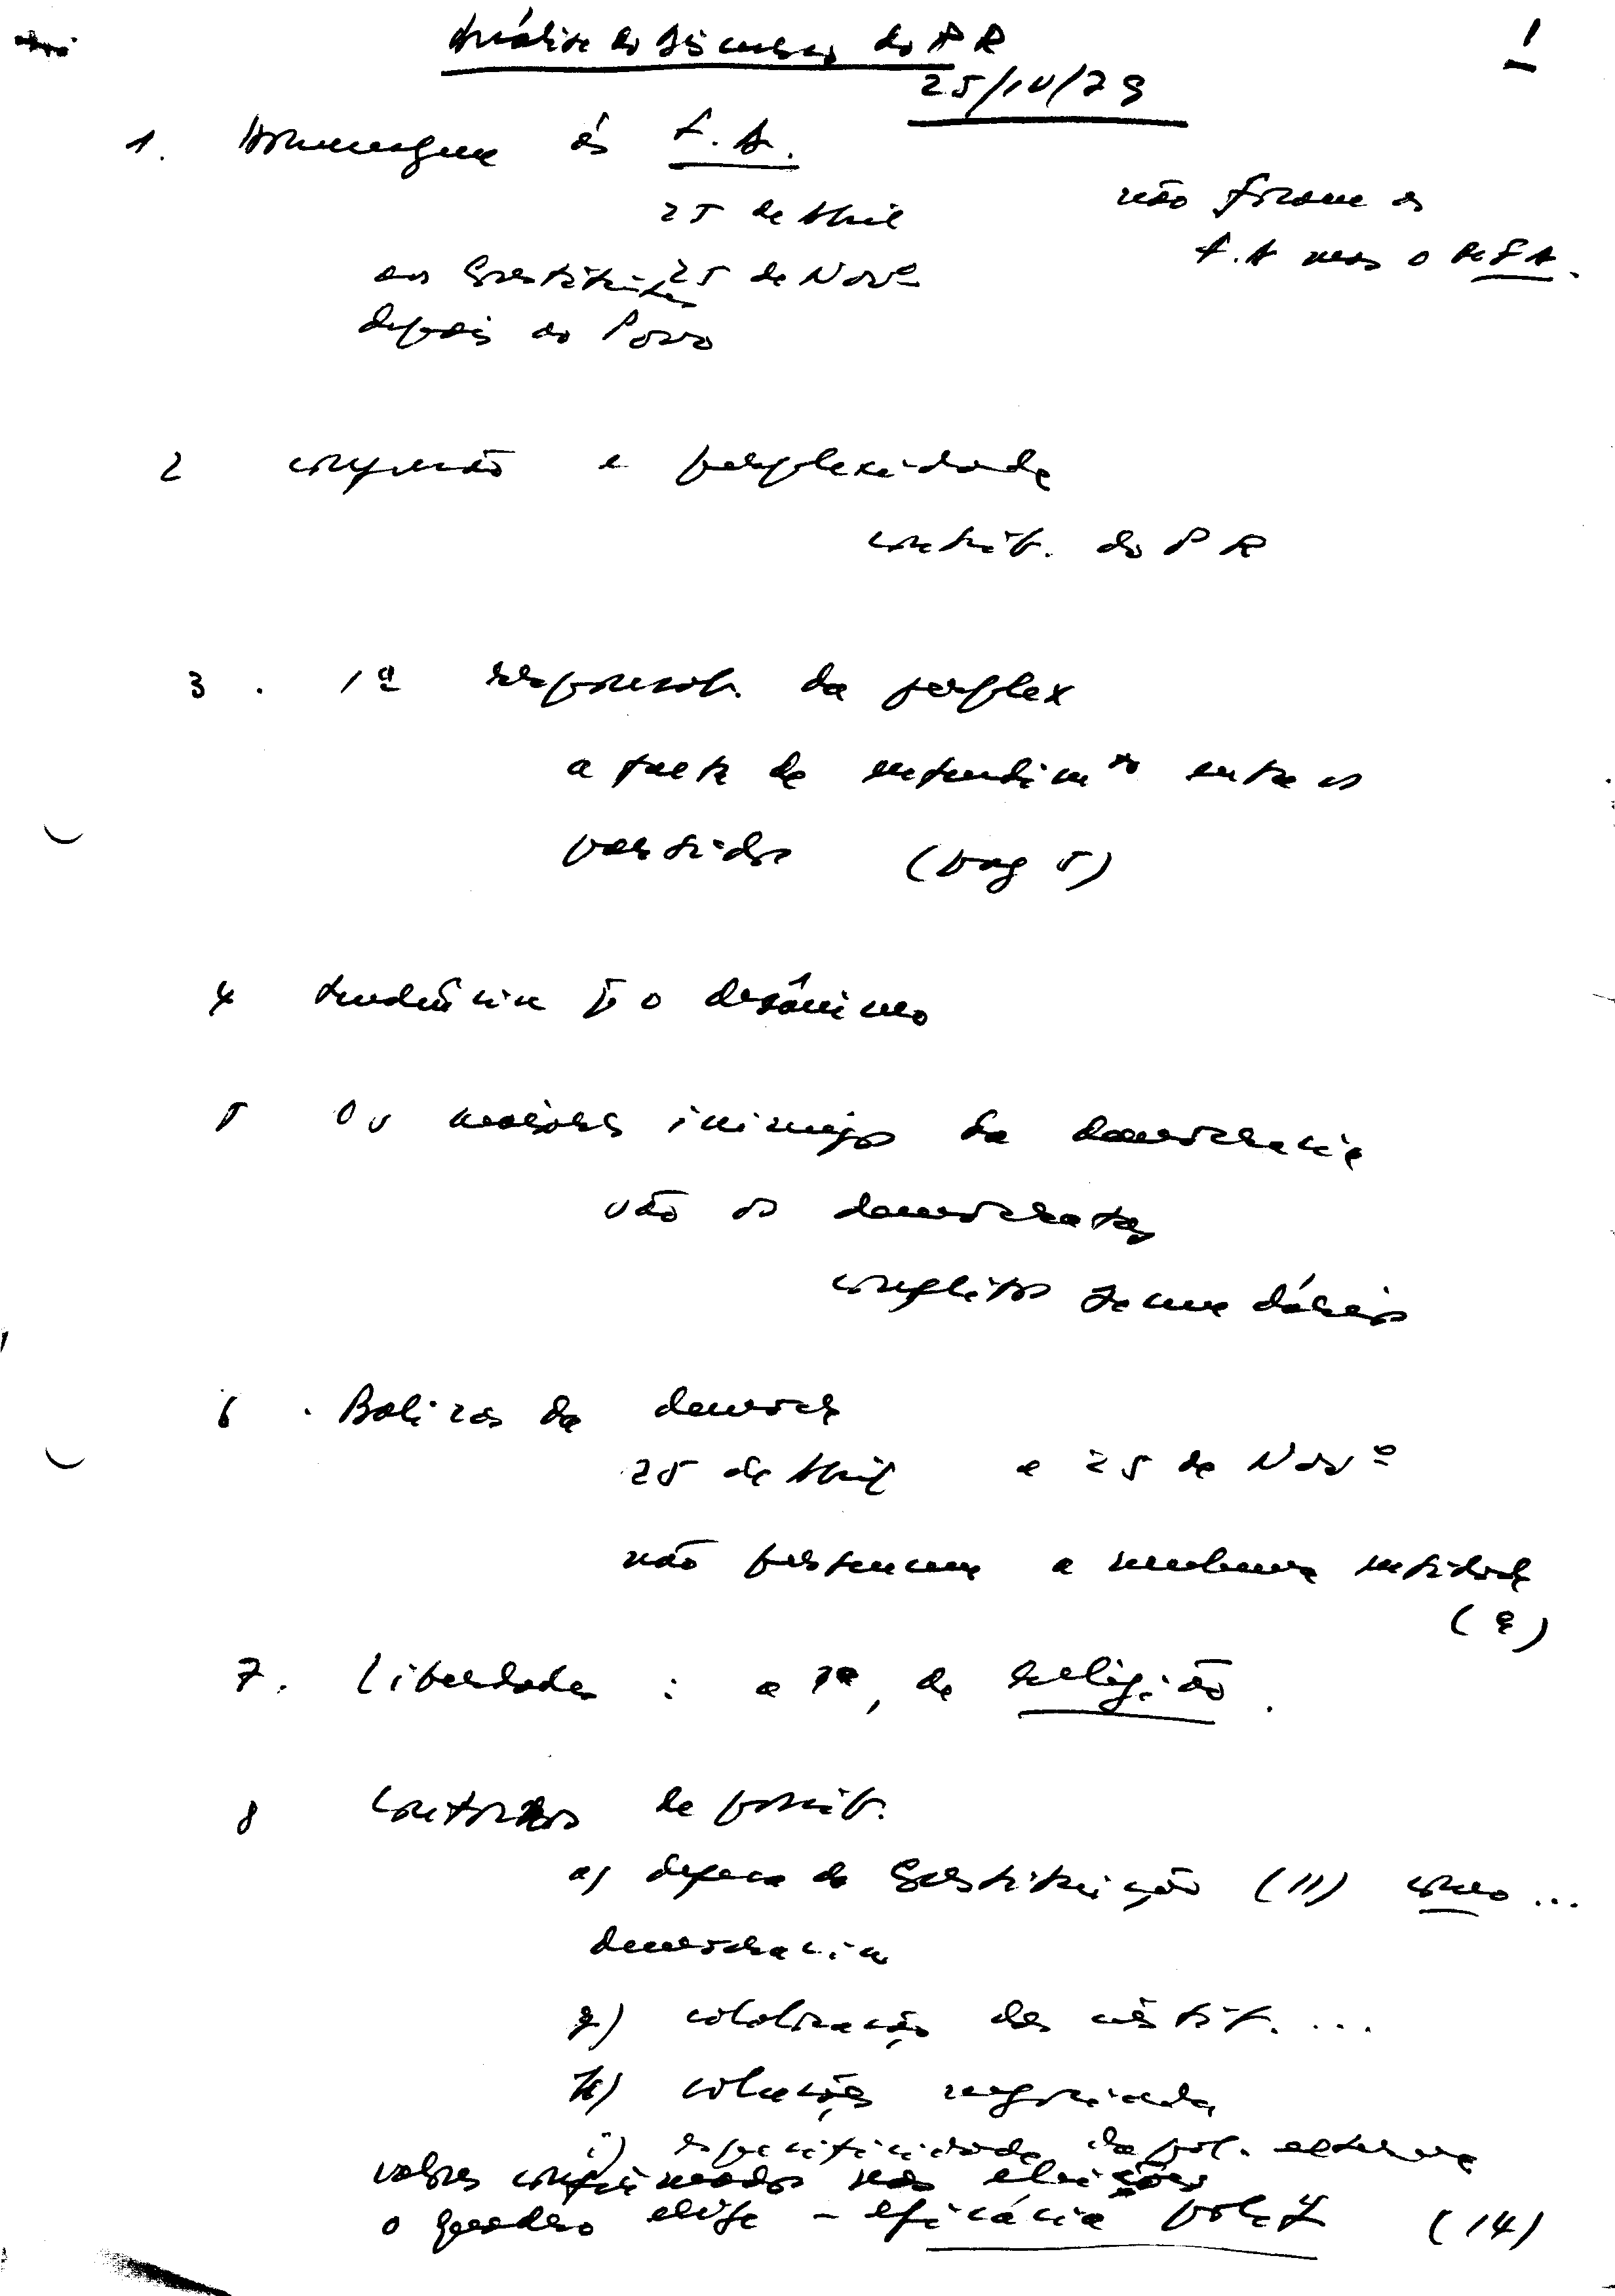 Análise do discurso do PR
1
25/IV/79
1. Homenagem às F.A.
25 de Abril
não foram as
F.A mas o MFA.
aos Constituintes 25 de Novº
depois ao Povo
2 confusão e perplexidade
contrib. do PR
3. 1ª responsab. da perplex
a falta de entendimto entre os
partidos (pag 5)
4 tendência p o desânimo
5 Os maiores inimigos da democracia
são os democratas
conflitos secundários
6. Balizas da democ
25 de Abril e 25 de Novº
não pertencem a nenhuma entidade
(9)
7. Liberdades : a 1ª, de religião.
8 Contornos de
a) defesa da Constituição (11) como ...
democracia
g) das instit. ...
h) soluções negociadas
i) especificidade da pol. externa
valores confirmados nas eleições
o quadro exige - eficácia polít (14)